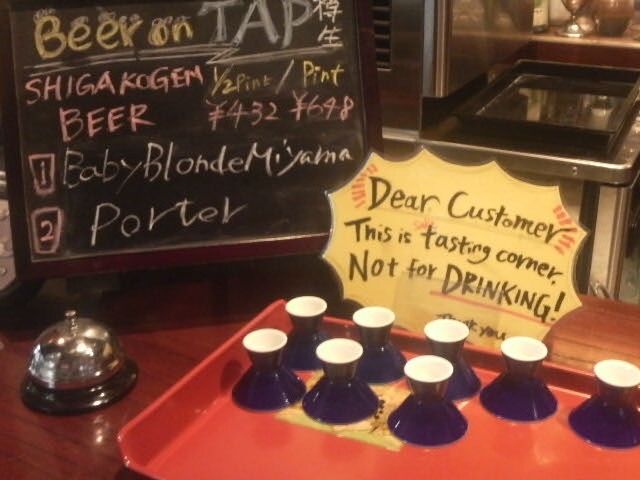 Beer on TAP 樽生
SHIGAKOGEN 1/2 Pint / Pint
BEER ¥432 ¥648
1 Baby Blonde Miyama
2 Porter
Dear Customer
This is tasting corner,
Not for DRINKING!
Thank you